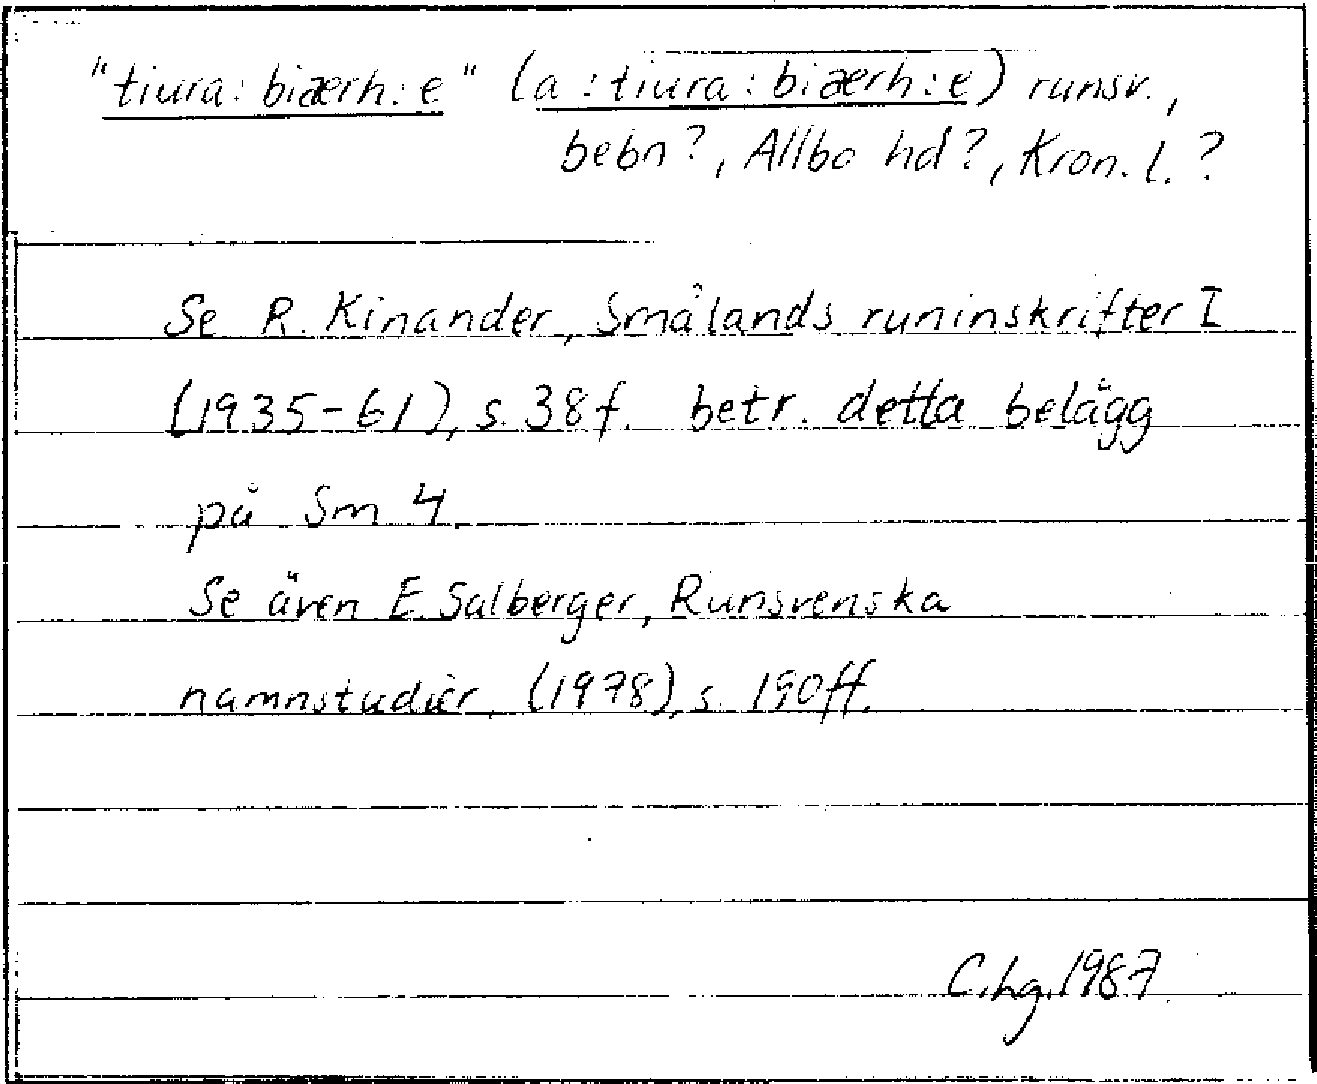 "tiura: biærh: e" (a : tiura : biærh : e) runsv.,
bebn?, Allbo hd?, Kron. l. ?
Se R. Kinander, Smålands runinskrifter I
(1935-61), s. 38 f. betr. detta belägg
på Sm 4.
Se även E. Salberger, Runsvenska
namnstudier, (1978), s. 190 ff.
C.hg. 1987